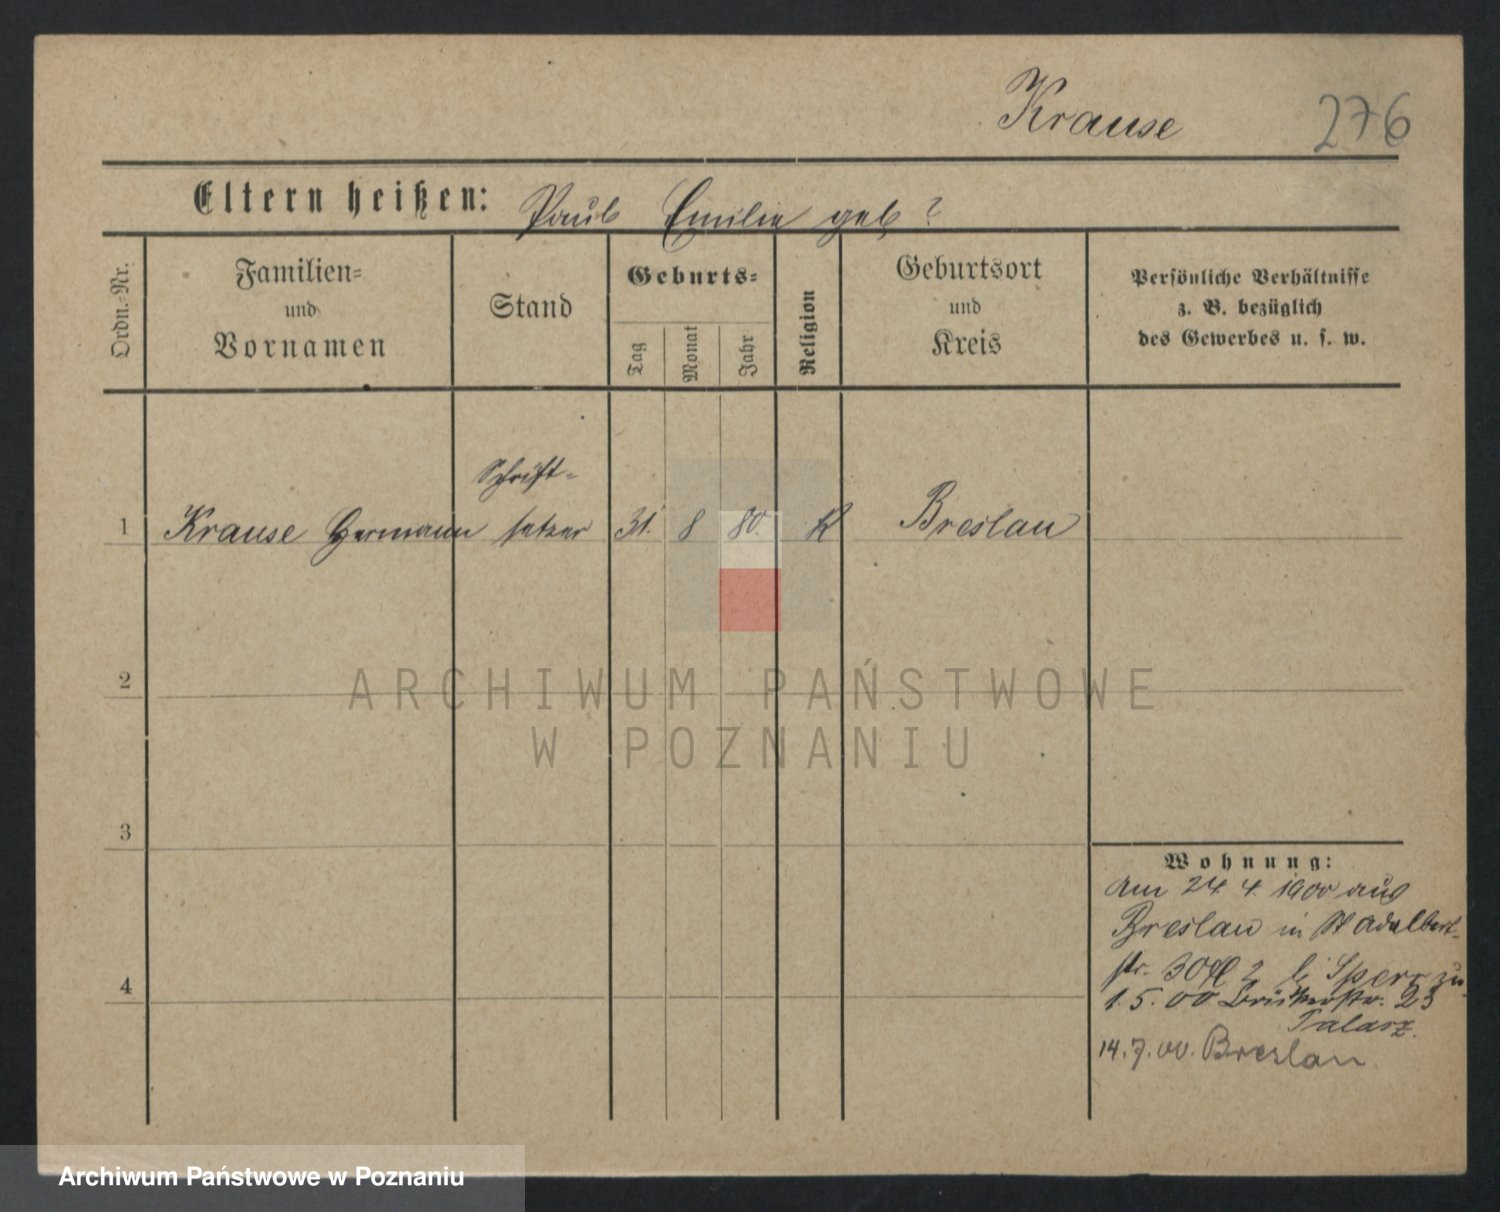 Krause 276
Eltern heißen: Paul Emilie geb ?
Ordn.-Nr.
Familien-
und
Vornamen
Stand
Geburts-
Tag
Monat
Jahr
Religion
Geburtsort
und
Kreis
Persönliche Verhältnisse
z. B. bezüglich
des Gewerbes u. s. w.
Schrift-
1 Krause Hermann setzer 31. 8 80. K Breslau
2
ARCHIWUM PAŃSTWOWE
W POZNANIU
3
Wohnung:
am 24. 4. 1900 aus
Breslau in St Adalbert-
4
str. 30 2 b Sperr zu-
1. 5. 00 23
Talarz.
14. 7. 00. Breslau
Archiwum Państwowe w Poznaniu